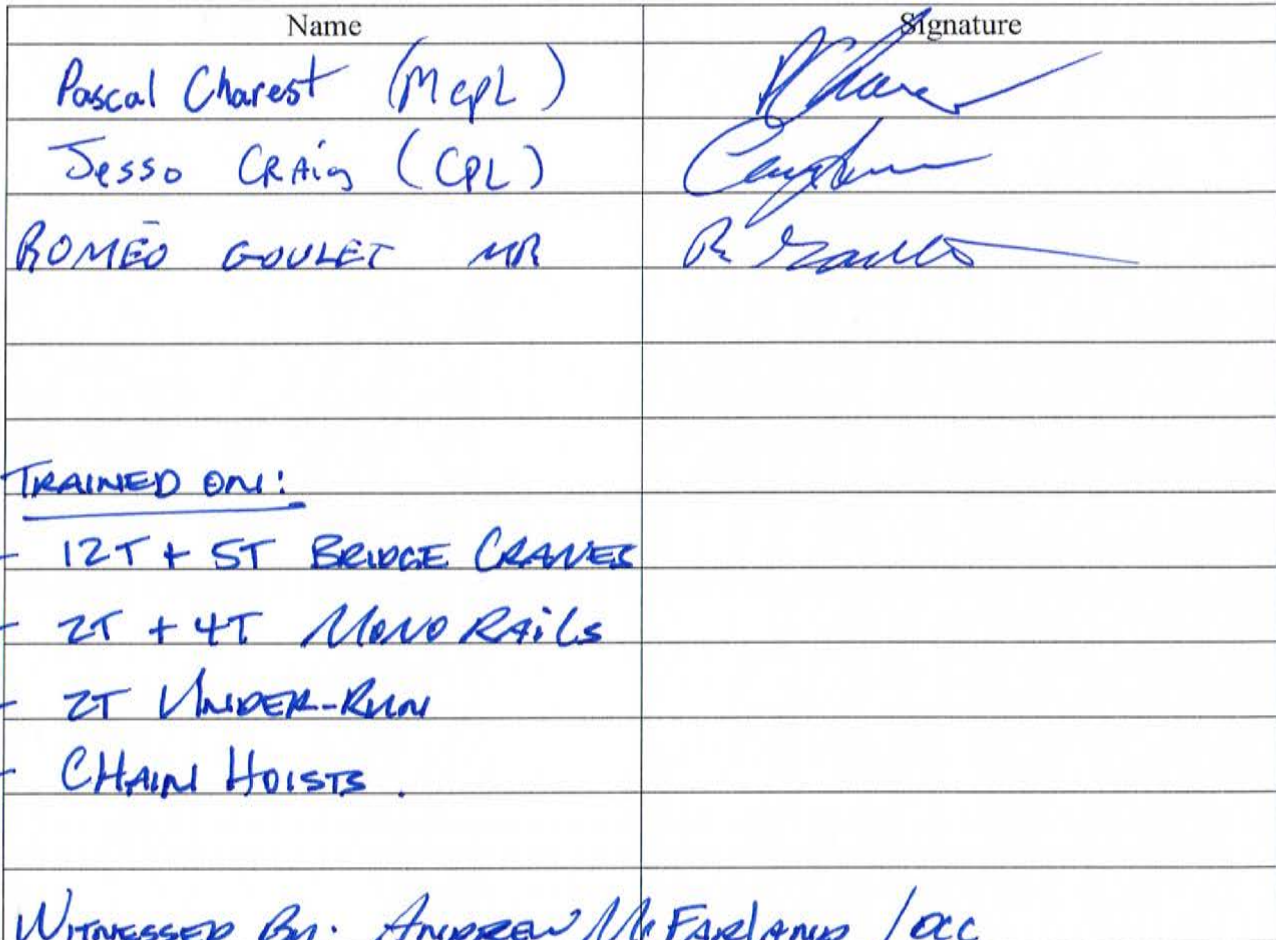 Name Signature
Pascal Charest (McpL)
Jesso CRAig (CPL)
ROMÉO GOULET MR
TRAINED ON:
- 12T + 5T BRIDGE CRANES
- 2T + 4T MONO RAiLS
- 2T UNDER-RUN
- CHAIN HOISTS.
WITNESSED BY: ANDREW McFARLAND /DCC